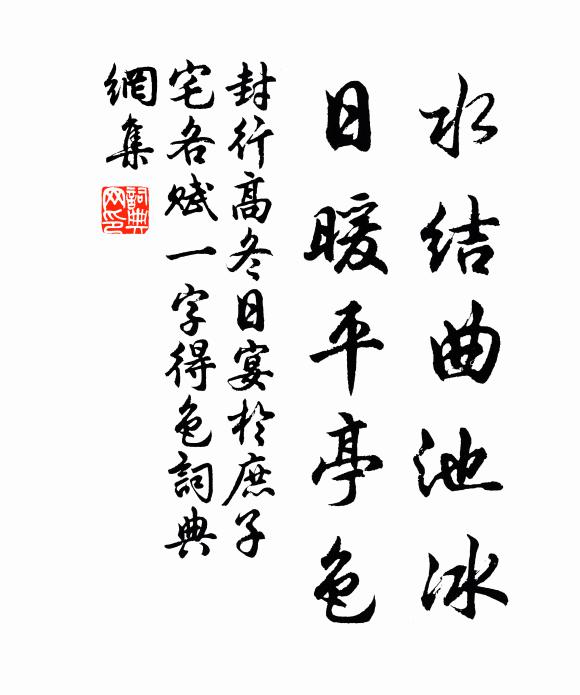 水结曲池冰
日暖平亭色
封行高冬日宴於庶子
宅各赋一字得色詞典
網集
詞典
网印